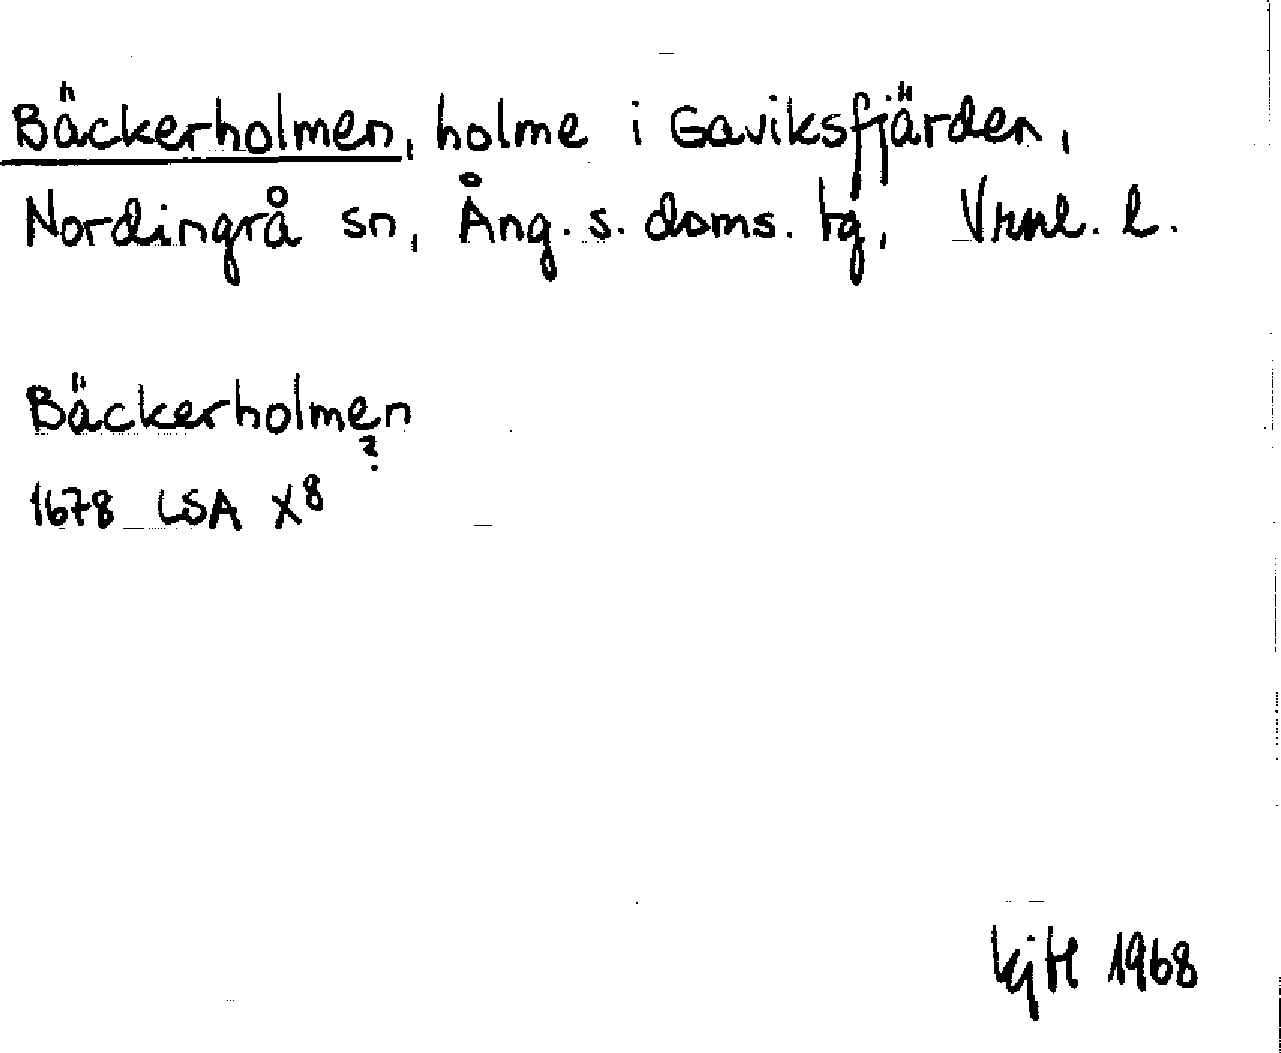 Bäckerholmen, holme i Gaviksfjärden,
Nordingrå sn, Ång. s. doms. tg, Vrnl. l.
Bäckerholmen
?
1678 LSA X8
KjH 1968